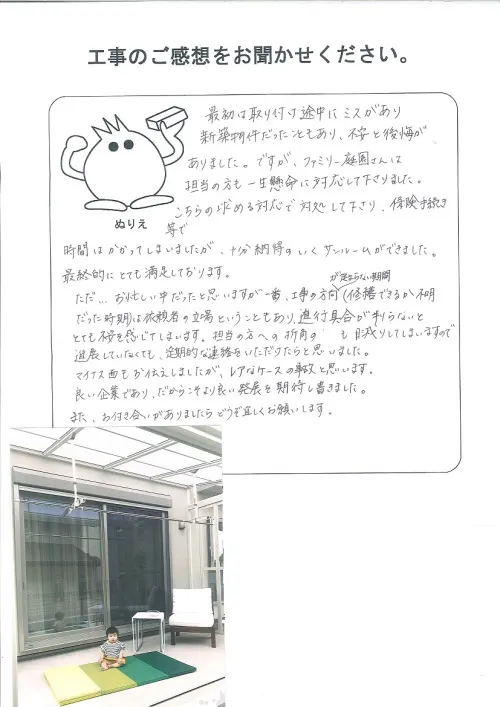 工事のご感想をお聞かせください。
最初は取り付け途中にミスがあり
新築物件だったこともあり、不安と後悔が
ありました。ですが、ファミリー庭園さんは
担当の方も一生懸命に対応して下さりました。
こちらの求める対応で対処して下さり、保険手続き
等で
ぬりえ
時間はかかってしまいましたが、十分納得のいくサンルームができました。
最終的にとても満足しております。
ただ…お忙しい中だったと思いますが一番、工事の方向(修繕できるか不明
が定まらない期間
だった時期)は依頼者の立場ということもあり、進行具合が判らないと
とても不安を感じてしまいます。担当の方への折角の も 目減りしてしまいますので
進展していなくても、定期的な連絡をいただけたらと思いました。
マイナス面もお伝えしましたが、レアなケースの事故と思います。
良い企業であり、だからこそより良い発展を期待し書きました。
また、お付き合いがありましたらどうぞ宜しくお願いします。